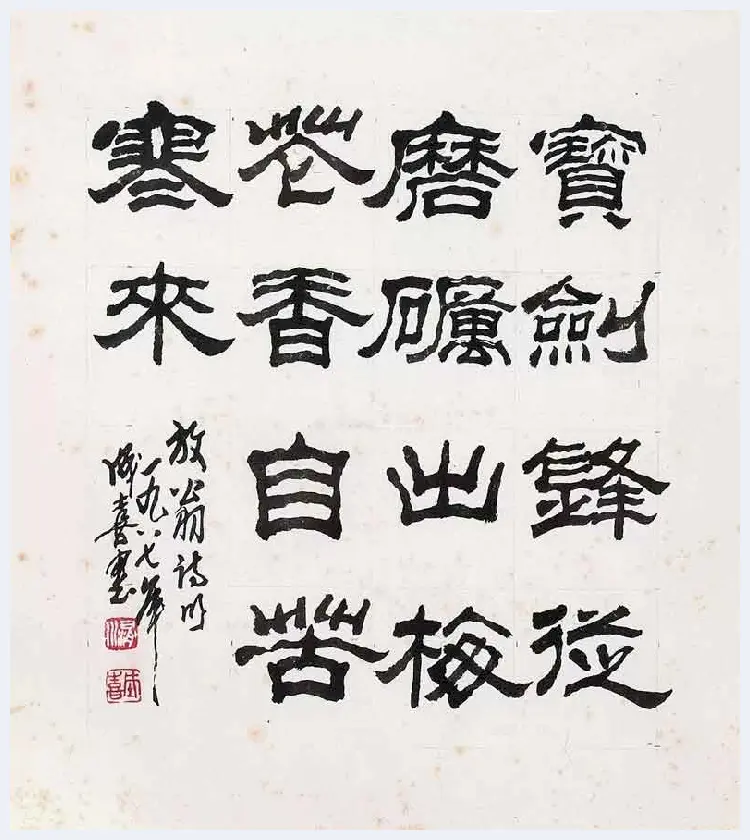 寶劍鋒從
磨礪出梅
花香自苦
寒來
放翁诗句
一九八七年
成喜書